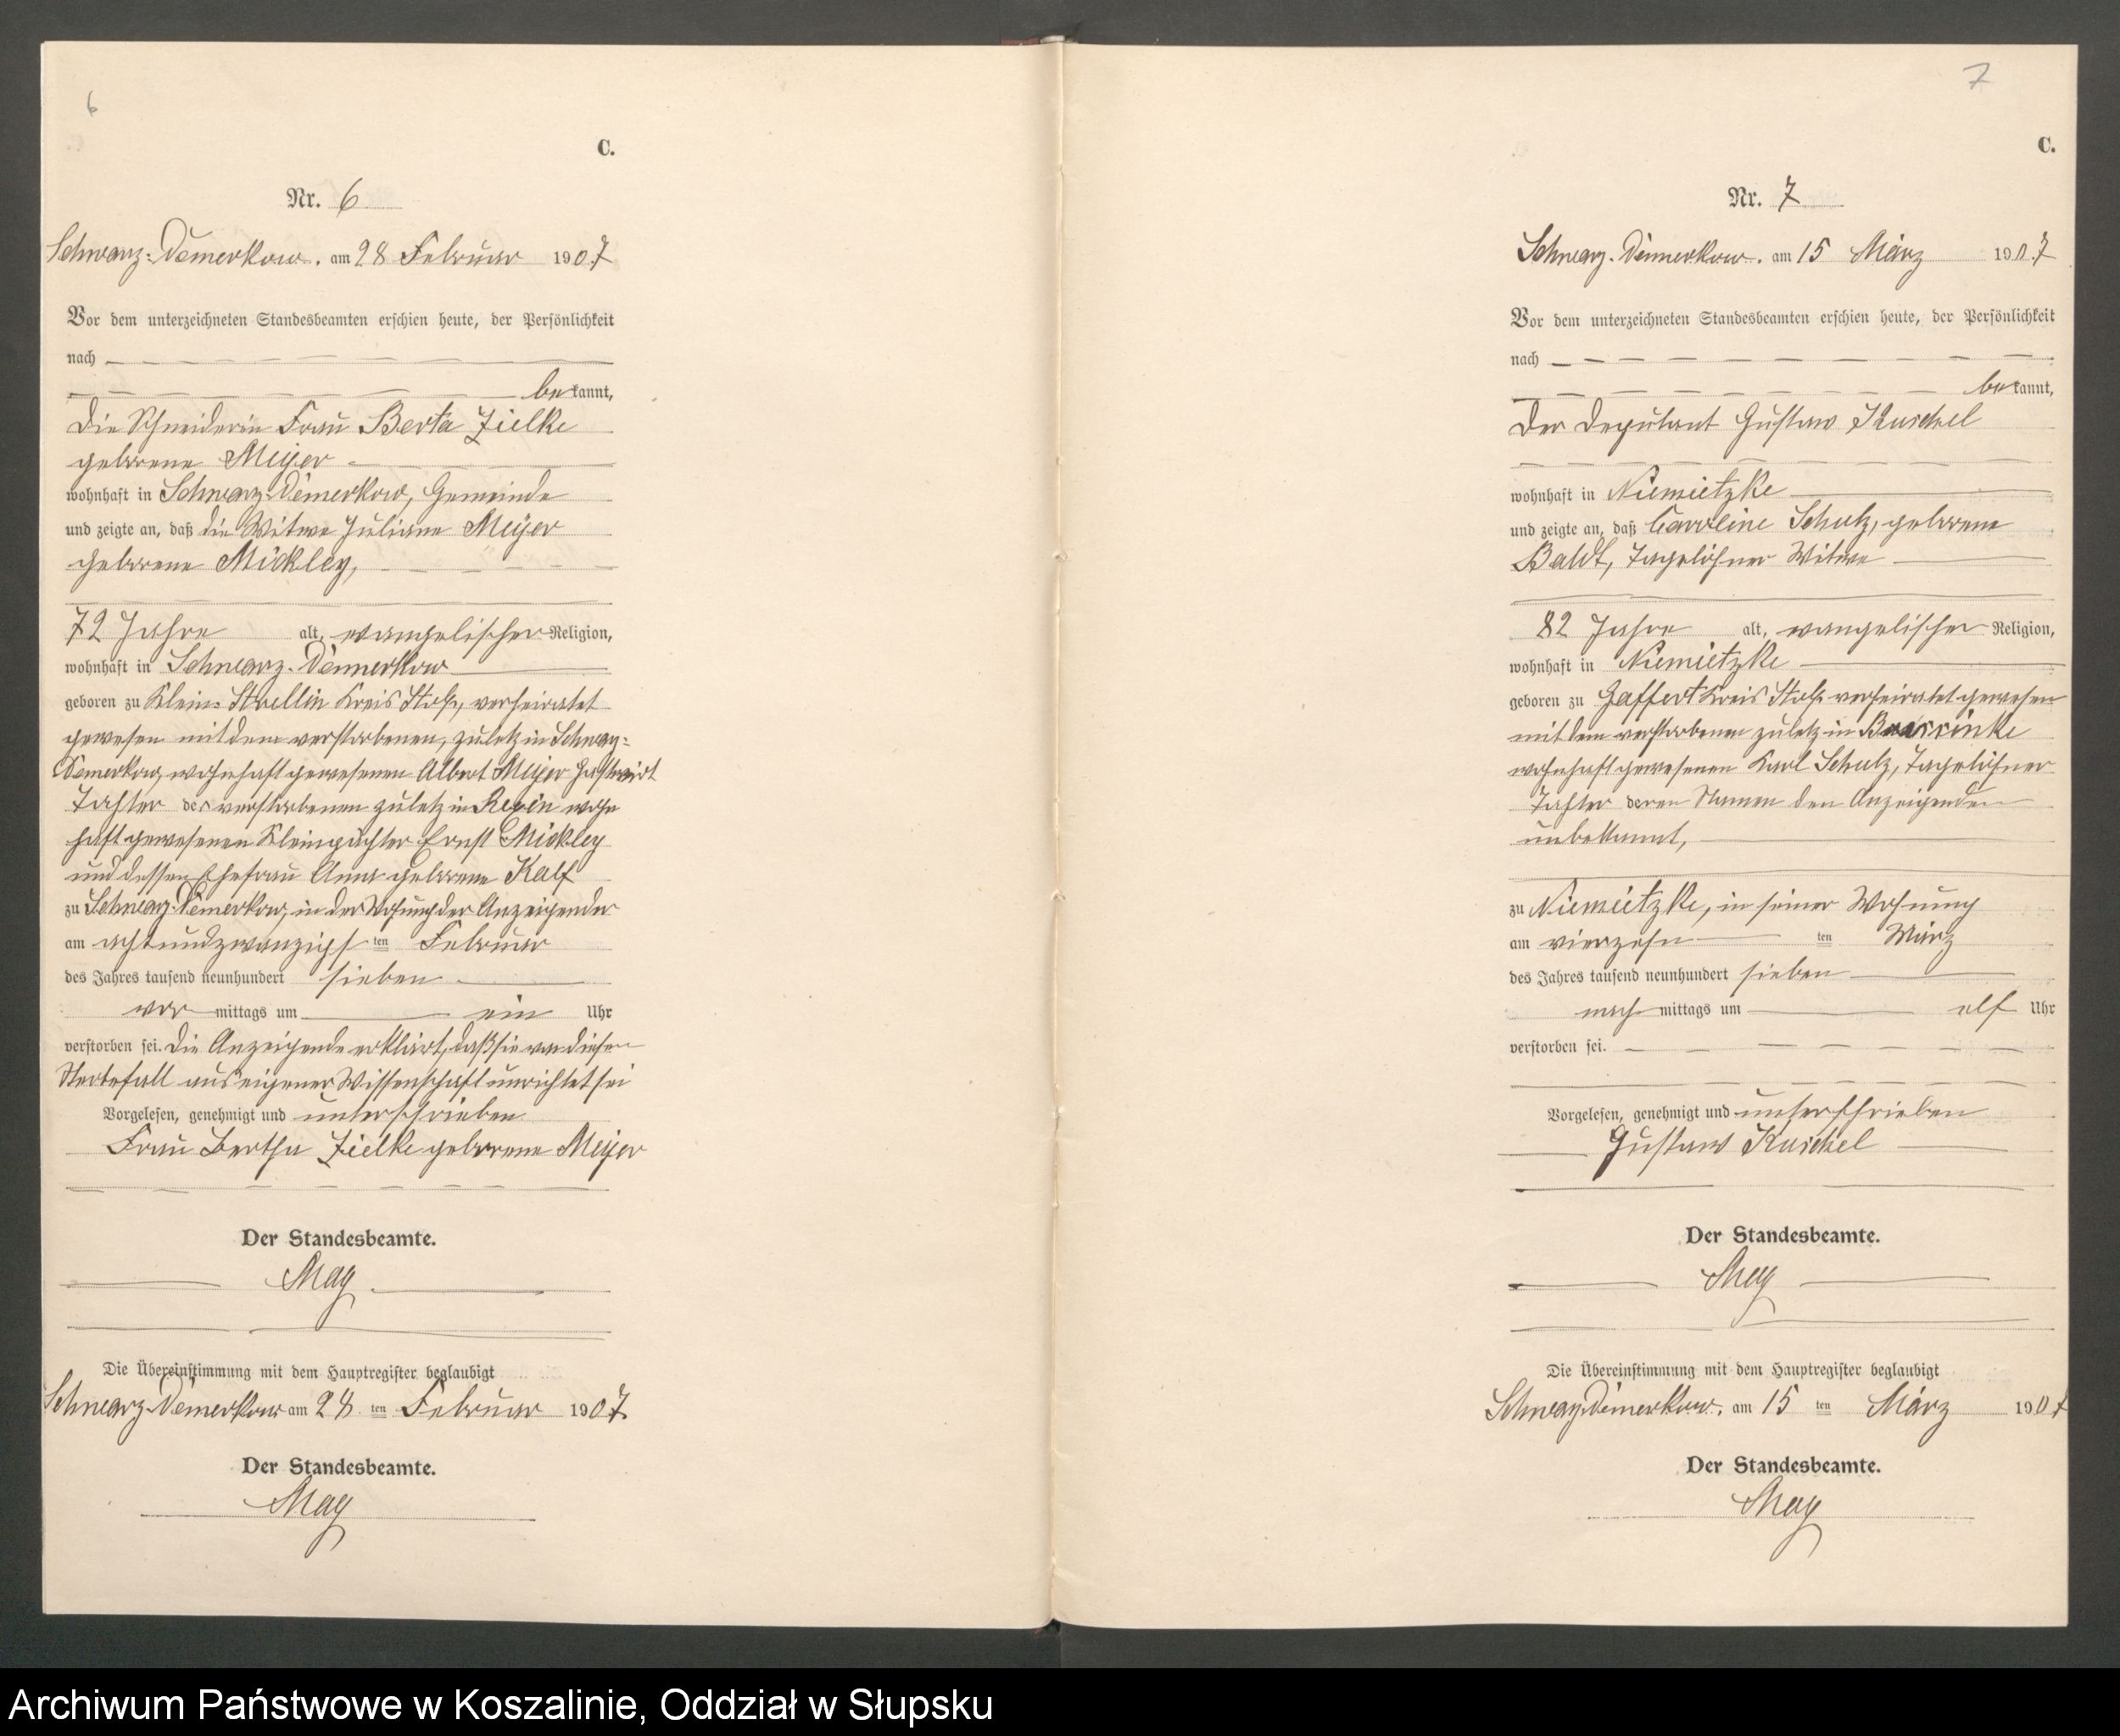 6
C.
Nr. 6
Schwarz-Damerkow. am 28 Februar 1907
Vor dem unterzeichneten Standesbeamten erschien heute, der Persönlichkeit
nach
bekannt,
die Schneiderin Frau Berta Zielke
geborene Meyer
wohnhaft in Schwarz-Damerkow, Gemeinde
und zeigte an, daß die Witwe Juliane Meyer
geborene Mickley,
72 Jahre alt, evangelischer Religion,
wohnhaft in Schwarz-Damerkow
geboren zu Klein-Strellin Kreis Stolp, verheiratet
gewesen mit dem verstorbenen, zuletz in Schwarz-
Damerkow wohnhaft gewesenen Albert Meyer Gastwirt
Tochter des verstorbenen zuletz in Rexin wohn
haft gewesenen Kleinpächter Ernst Mickley
und dessen Ehefrau Anna geborene Kalf
zu Schwarz-Damerkow, in der Wohnung der Anzeigender
am achtundzwanzigsten Februar
des Jahres tausend neunhundert sieben
vormittags um ein Uhr
verstorben sei. Die Anzeigende erklärt, daß sie von diesen
Sterbefall aus eigener Wissenschaft unrichtet sei
Vorgelesen, genehmigt und unterschrieben
Frau Bertha Zielke geborene Meyer
Der Standesbeamte.
May
Die Übereinstimmung mit dem Hauptregister beglaubigt
Schwarz-Damerkow am 28 ten Februar 1907
Der Standesbeamte.
May
7
C.
Nr. 7
Schwarz-Damerkow. am 15 März 1907
Vor dem unterzeichneten Standesbeamten erschien heute, der Persönlichkeit
nach
bekannt,
der Deputant Gustaw Kuschel
wohnhaft in Niemietzke
und zeigte an, daß Caroline Schulz, geborene
Baldt, Tagelöhner Witwe
82 Jahre alt, evangelischer Religion,
wohnhaft in Niemietzke
geboren zu Gaffert Kreis Stolp verheiratet gewesen
mit dem verstorbenen zuletz in
wohnhaft gewesenen Karl Schulz, Tagelöhner
Tochter deren Namen den Anzeigenden
unbekannt,
zu Niemietzke, in seiner Wohnung
am vierzehnten März
des Jahres tausend neunhundert sieben
nachmittags um elf Uhr
verstorben sei.
Vorgelesen, genehmigt und unterschrieben
Gustaw Kuschel
Der Standesbeamte.
May
Die Übereinstimmung mit dem Hauptregister beglaubigt
Schwarz-Damerkow, am 15 ten März 1907
Der Standesbeamte.
May
Archiwum Państwowe w Koszalinie, Oddział w Słupsku